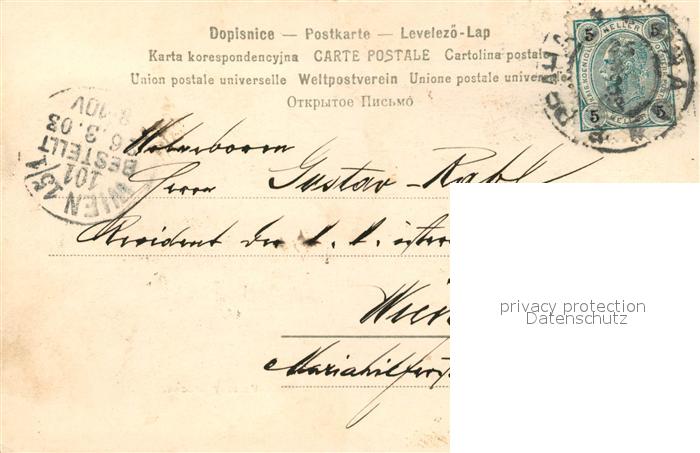 Dopisnice — Postkarte — Levelező-Lap
Karta korespondencyjna CARTE POSTALE Cartolina postale
Union postale universelle Weltpostverein Unione postale universelle
Открытое Письмо
5 HELLER 5
5 5
WIEN 15/1
101
BESTELLT
6.3.03
8-10V
Herrn Gustav Rabl
Revident der k. k. österr
Wien
Mariahilferst
privacy protection
Datenschutz